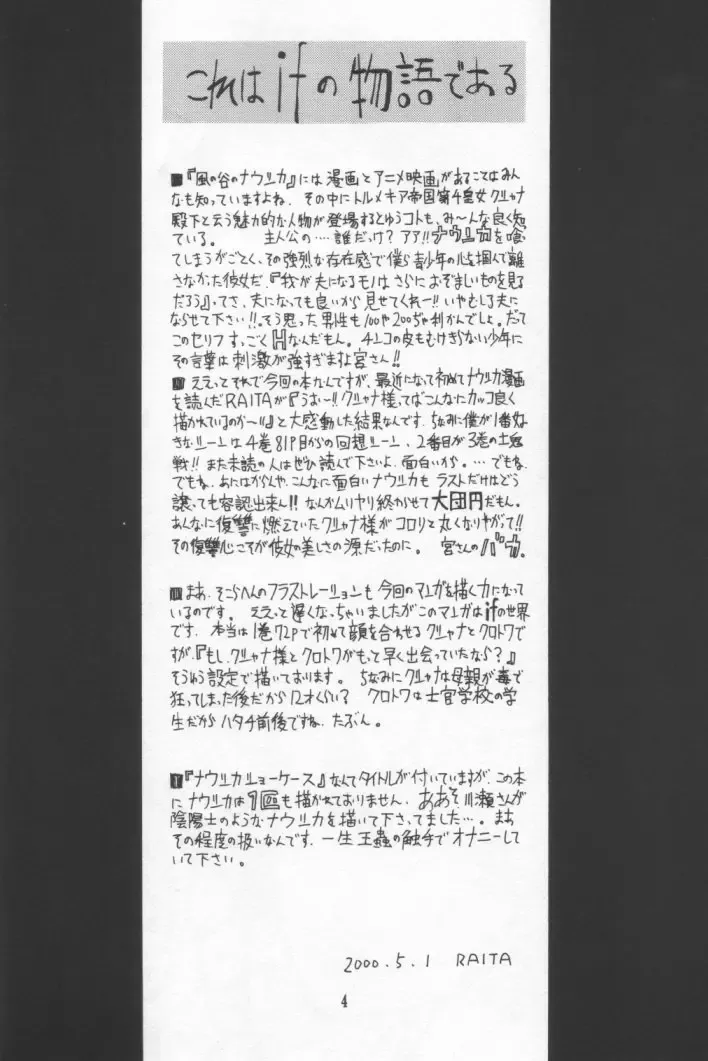 これはifの物語である
■『風の谷のナウシカ』には漫画とアニメ映画があることはみん
なも知っていますよね。その中にトルメキア帝国第4皇女クシャナ
殿下と云う魅力的な人物が登場するとゆうコトも、み〜んな良く知
ている。 主人公の‥‥誰だっけ？アア!!ナウシカを喰っ
てしまうがごとく、その強烈な存在感で僕ら青少年の心を掴んで離
さなかった彼女だ。『我が夫になるモノはさらにおぞましいものを見る
だろう』ってさ、夫になっても良いから見せてくれー!!いやむしろ夫に
ならせて下さい!!。そう思った男性も100や200ぢゃ利かんでしょ。だって
このセリフすっごくHなんだもん。チ○コの皮もむけきらない少年に
その言葉は刺激が強すぎますよ宮さん!!
■ええっとそれで今回の本なんですが、最近になって初めてナウシカ漫画
を読んだRAITAが『うお〜!!クシャナ様ってばこんなにカッコ良く
描かれているのか〜!!』と大感動した結果なんです。ちなみに僕が1番好
きなシーンは4巻81P目からの回想シーン、2番目が3巻の土鬼
戦!!また未読の人はぜひ読んで下さいよ、面白いから。‥‥でもね、
でもね、あたはがんや、こんなに面白いナウシカも ラストだけはどう
譲っても容認出来ん!!なんかムリヤリ終わらせて大団円だもん。
あんなに復讐に燃えていたクシャナ様がコロリと丸くなりやがって!!
その復讐心こそが彼女の美しさの源だったのに。 宮さんのバカ。
■まあ、そこらへんのフラストレーションも今回のマンガを描く力になって
いるのです。 ええっと遅くなっちゃいましたがこのマンガはifの世界
です。本当は1巻72Pで初めて顔を合わせるクシャナとクロトワで
すが、『もしクシャナ様とクロトワがもっと早く出会っていたなら？』
そうゆう設定で描いております。ちなみにクシャナは母親が毒で
狂ってしまった後だから12才くらい？ クロトワは士官学校の学
生だからハタチ前後ですね、たぶん。
■『ナウシカショーケース』なんてタイトルが付いていますが、この本
にナウシカは1回も描かれておりません、ああそ、川瀬さんが
陰陽士のようなナウシカを描いて下さってました‥‥。まあ
その程度の扱いなんです、一生王蟲の触手でオナニーして
いて下さい。
2000.5.1 RAITA
4